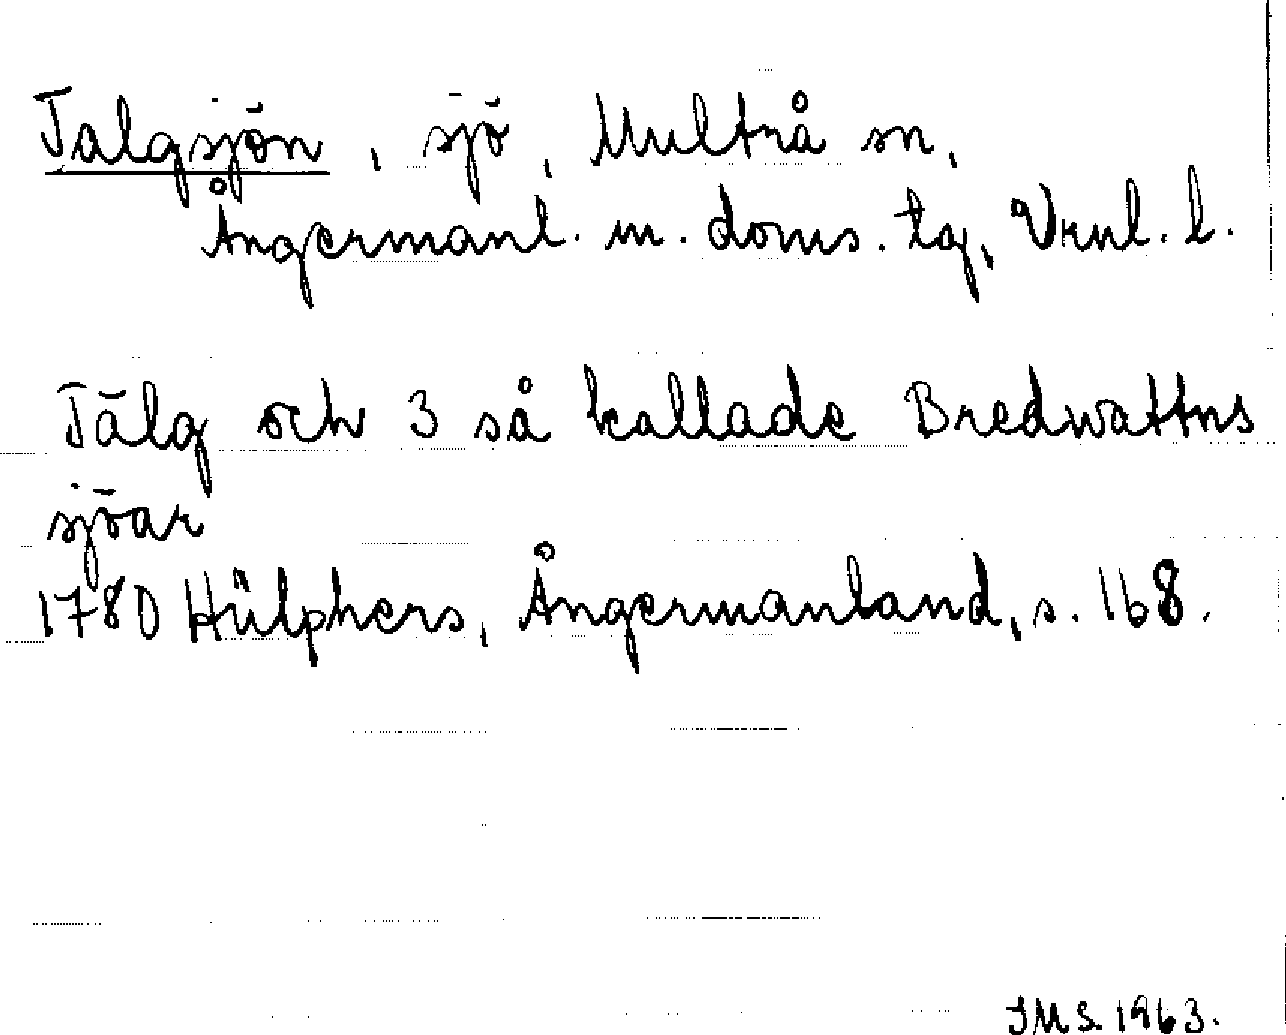 Talgsjön, sjö, Multrå sn,
Ångermanl. m. doms. tg, Vrnl. l.
Tälg och 3 så kallade Bredwattns
sjöar
1780 Hülphers, Ångermanland, s. 168.
IMS. 1963.